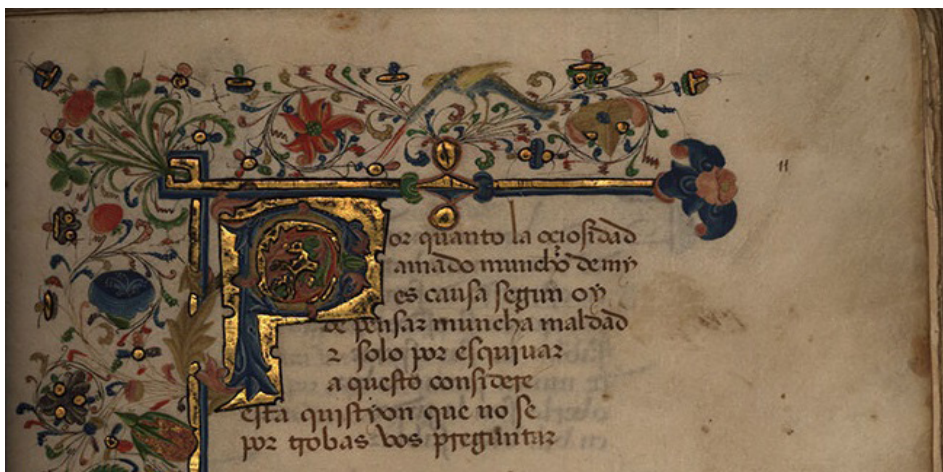 11
Por quanto la oçiosidad
amado muncho de my
es causa segun oy
de pensar muncha maldad
z solo por esquiuar
a questo considere
esta quistyon que no se
por trobas vos preguntar